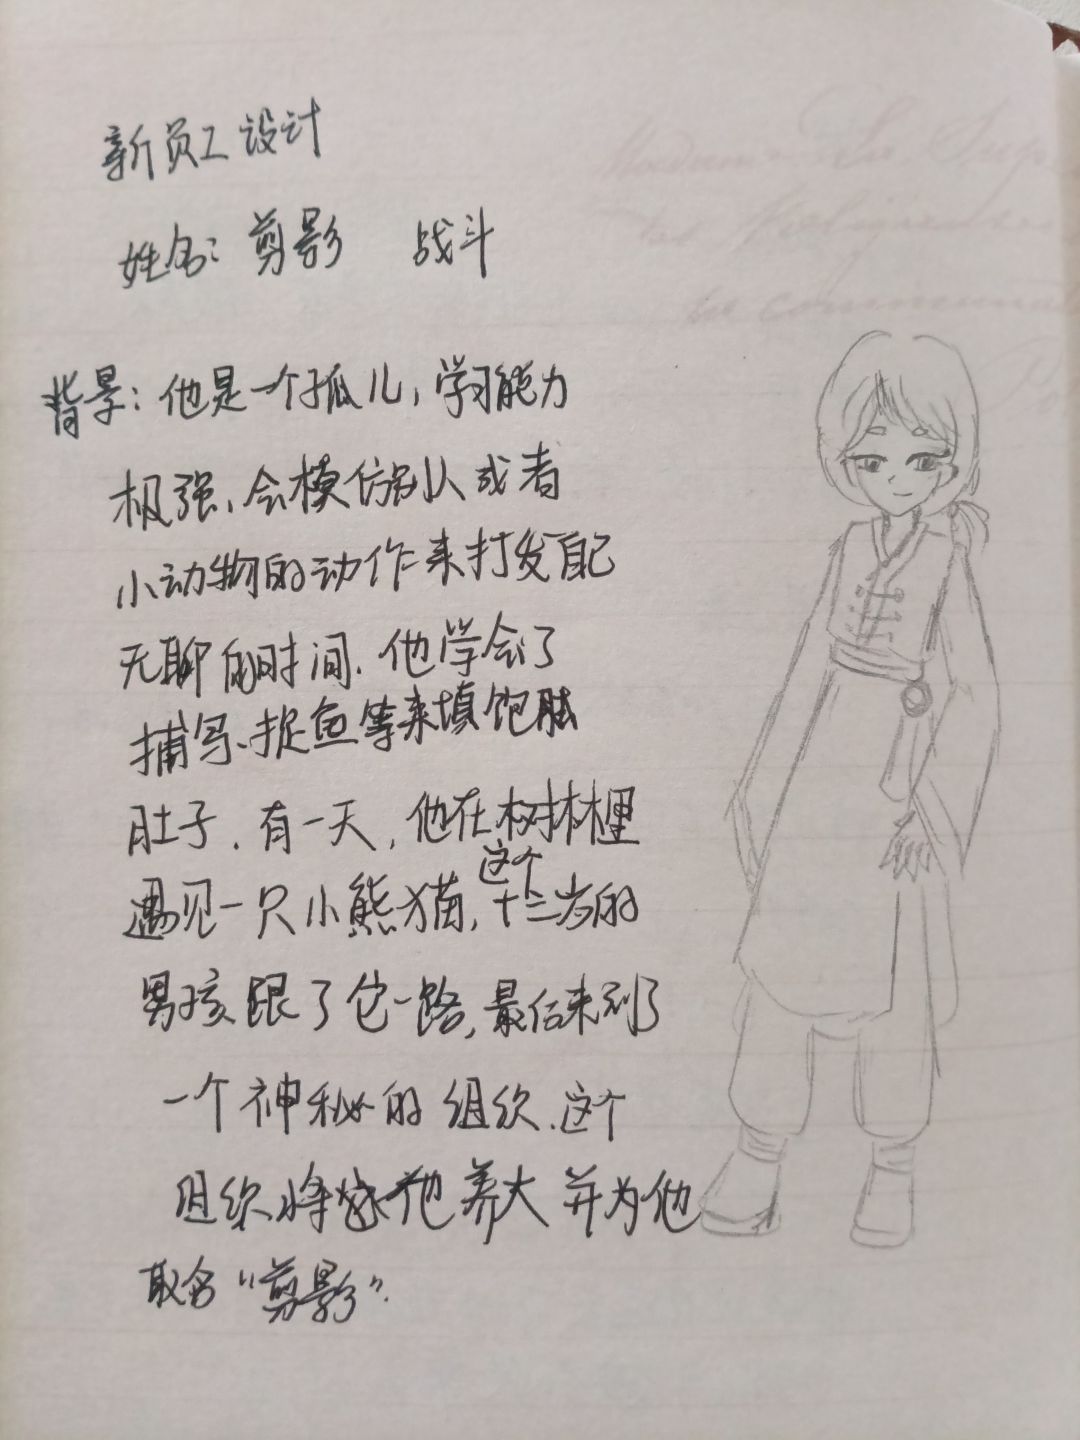 新员工设计
姓名：剪影 战斗
背景：他是一个孤儿，学习能力
极强，会模仿别人或者
小动物的动作来打发自己
无聊的时间．他学会了
捕鸟、捉鱼等来填饱肚
肚子．有一天，他在树林里
遇见一只小熊猫，这个十三岁的
男孩跟了它一路，最后来到了
一个神秘的组织．这个
组织将他养大并为他
取名“剪影”．